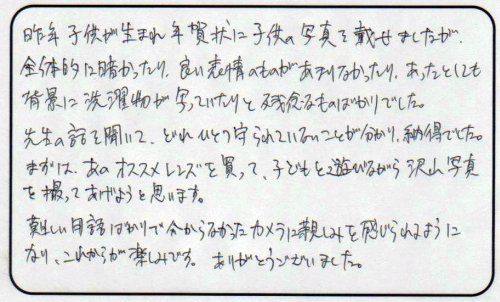 昨年子供が生まれ年賀状に子供の写真を載せましたが、
全体的に暗かったり、良い表情のものがあまりなかったり、あったとしても
背景に洗濯物が写っていたりと残念なものばかりでした。
先生の話を聞いて、どれひとつ守られていないことが分かり、納得でした。
まずは、あのオススメレンズを買って、子どもと遊びながら沢山写真
を撮ってあげようと思います。
難しい用語ばかりで分からなかったカメラに親しみを感じられるように
なり、これからが楽しみです。ありがとうございました。